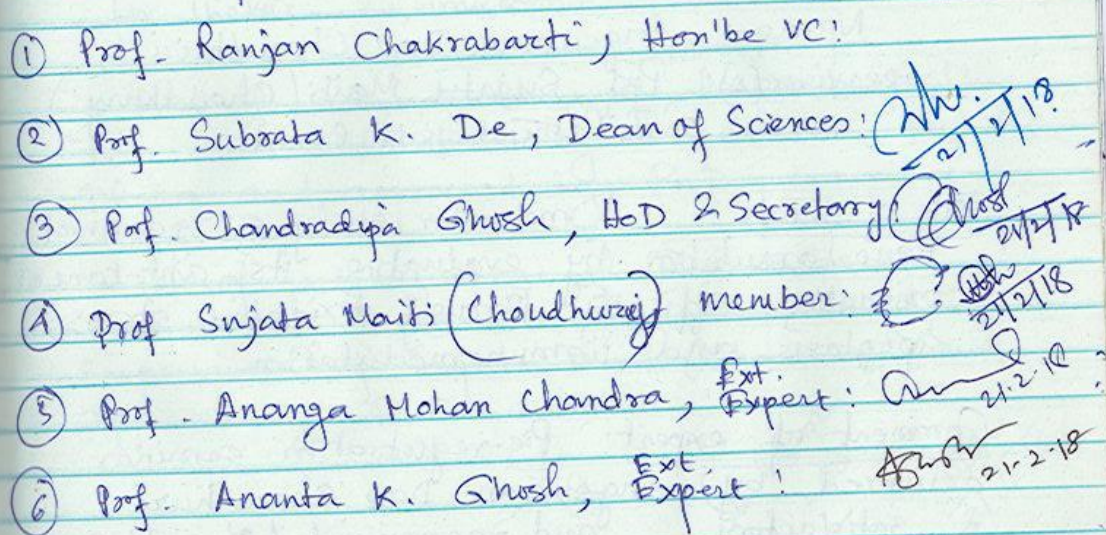 ① Prof. Ranjan Chakrabarti, Hon'be VC:
② Prof. Subrata K. De, Dean of Sciences: 21/2/18
③ Prof. Chandradipa Ghosh, HoD & Secretary: Ghosh 21/2/18
④ Prof Sujata Maiti (Choudhury) member: 21/2/18
⑤ Prof. Ananga Mohan Chandra, Ext. Expert: 21.2.18
⑥ Prof. Ananta K. Ghosh, Ext. Expert: 21-2-18